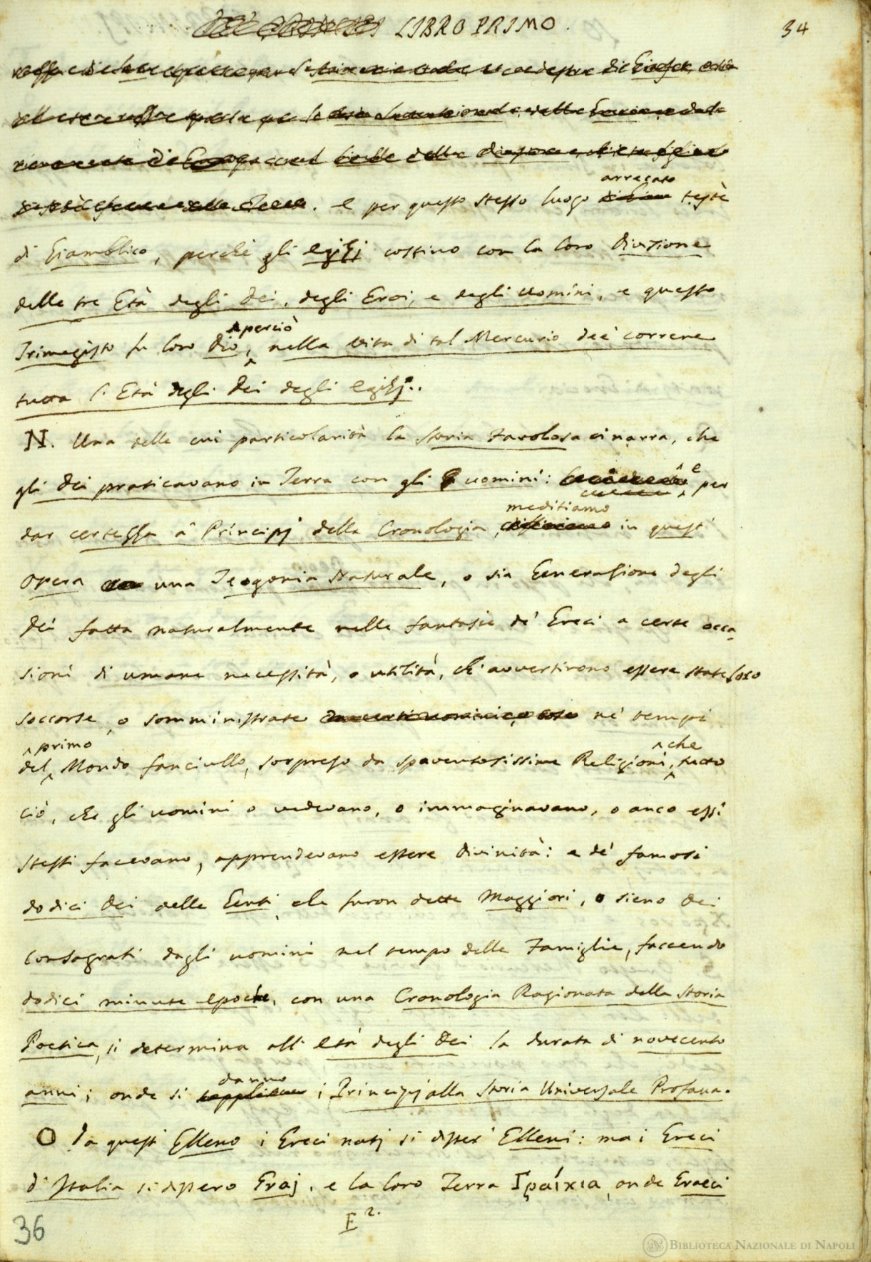 LIBRO PRIMO. 34
. e per questo stesso luogo arrecato testè
di Giamblico, perchè gli Egizj
delle tre Età degli Dei, degli Eroi, e degli uomini, e questo
Trimegisto fu loro Dio, aperciò nella vita di tal Mercurio dee correre
tutta l'Età degli Dei degli Egizj.
N. Una delle cui particolarità la Storia Favolosa ci narra, che
gli Dei praticavano in Terra con gli uomini: e per
dar certezza a' Principj della Cronologia, meditiamo in quest'
Opera una Teogonia Naturale, o sia Generazione degli
Dei fatta naturalmente nelle fantasie de' Greci a certe occa-
sioni di umane necessità, o utilità, ch'avvertirono essere state loro
soccorse, o somministrate ne' tempi
del primo Mondo fanciullo, sorpreso da spaventosissime Religioni, che tutto
ciò, che gli uomini o vedevano, o immaginavano, o anco essi
stessi facevano, apprendevano essere Divinità: e de' famosi
dodici Dei delle Genti, che furon dette Maggiori, o sieno Dei
consagrati dagli uomini nel tempo delle Famiglie, faccendo
dodici minute epoche, con una Cronologia Ragionata della Storia
Poetica, si determina all'Età degli Dei la durata di novecento
anni; onde si danno i Principj alla Storia Universale Profana.
O Da quest'Elleno i Greci natj si disser' Elleni: ma i Greci
d'Italia si dissero Graj, e la loro Terra Γραίκια, onde Graeci
E 2.
36
BIBLIOTECA NAZIONALE DI NAPOLI